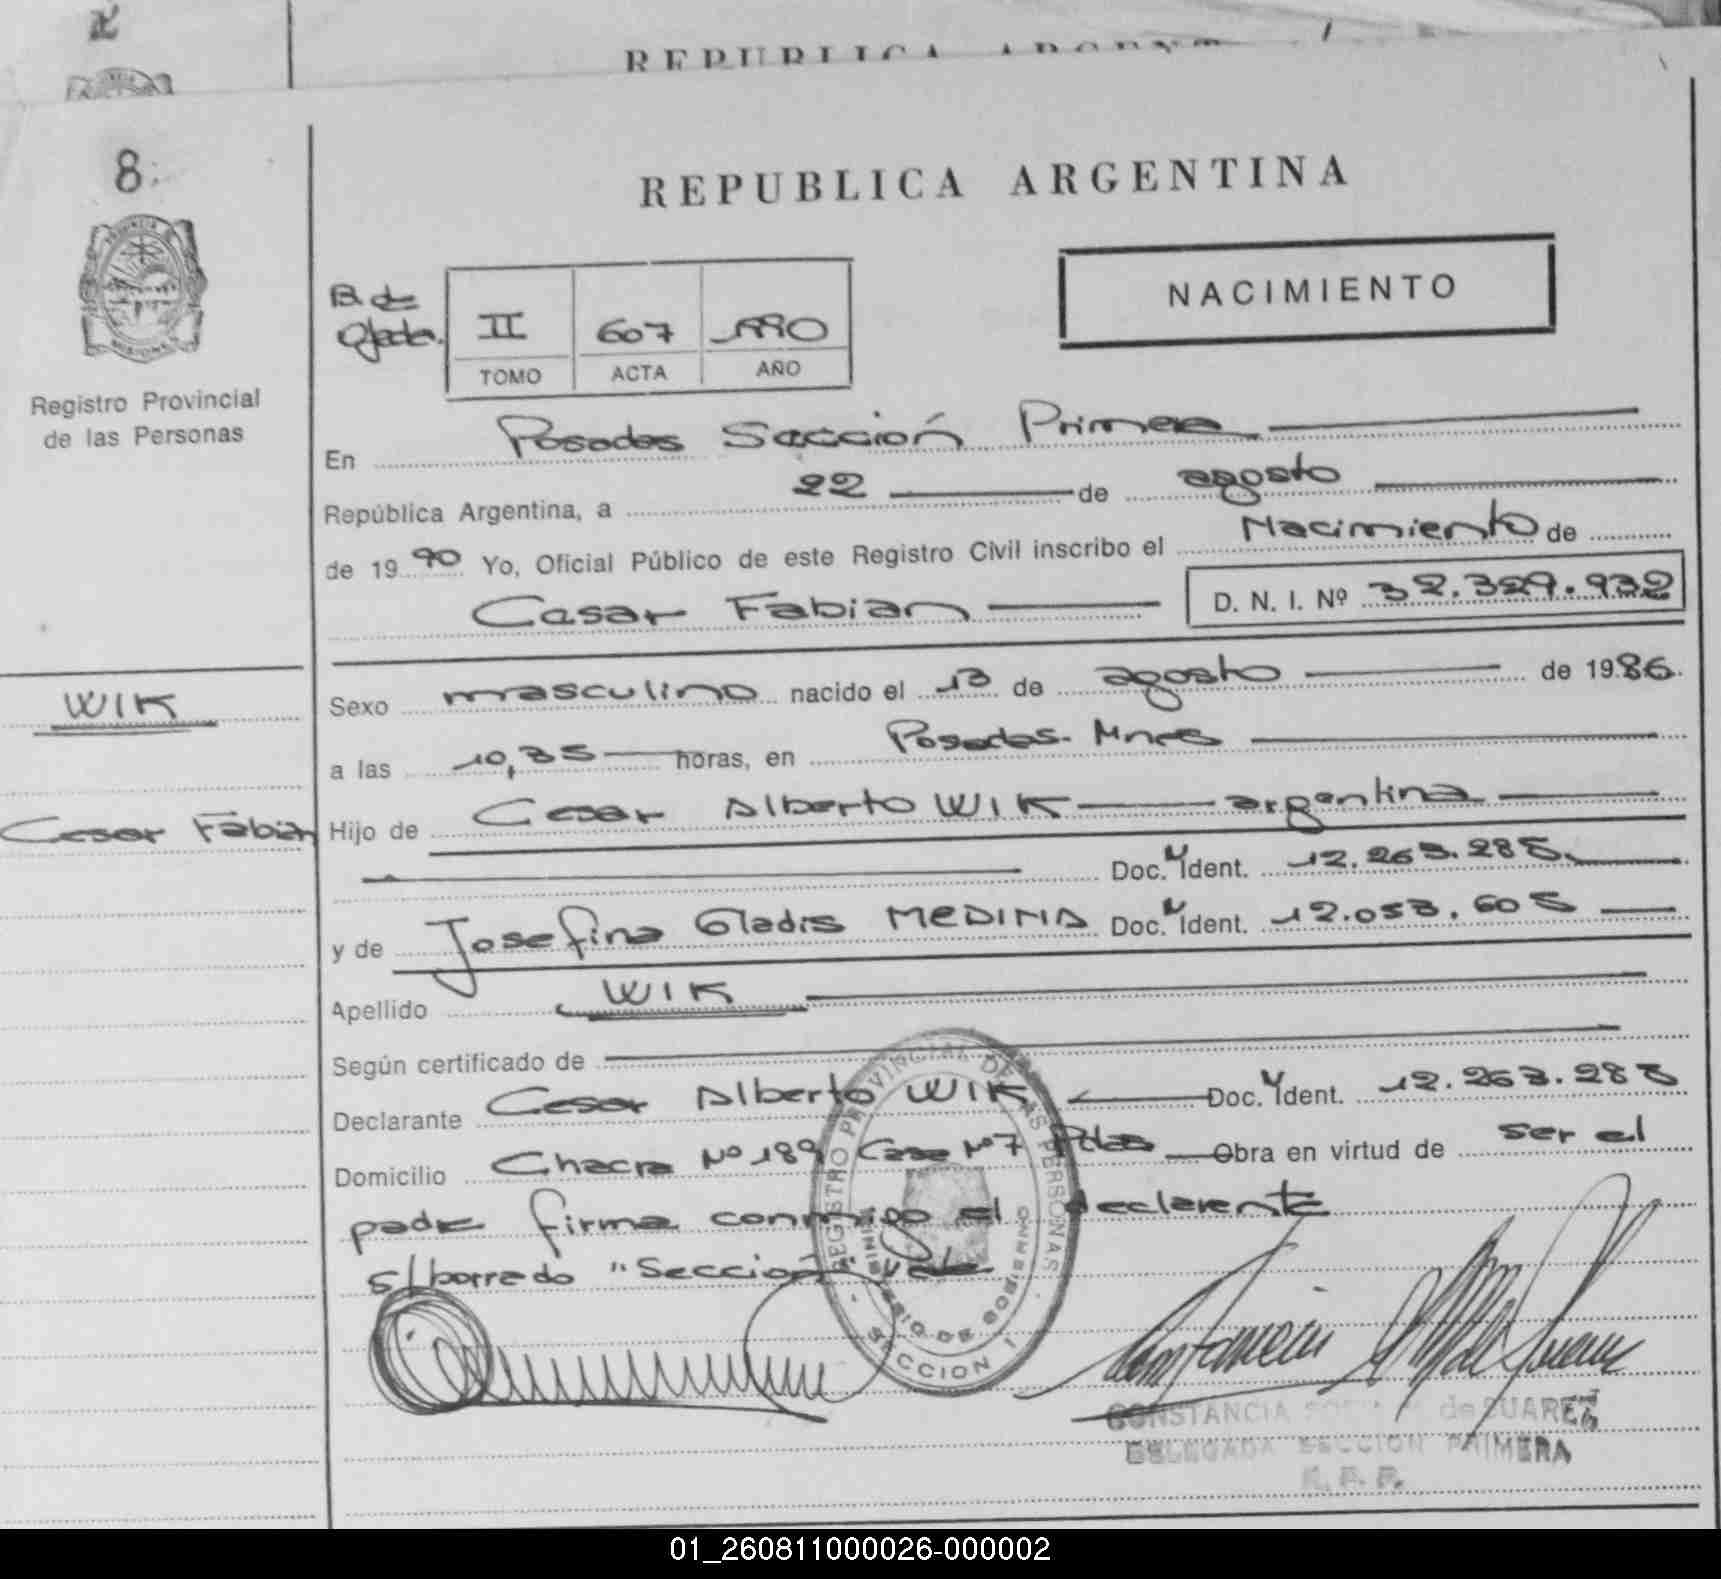 REPUBLICA ARGENT
8
REPUBLICA ARGENTINA
PROVINCIA DE MISIONES
Registro Provincial
de las Personas
B. de
II 607 1990
TOMO ACTA AÑO
NACIMIENTO
En Posadas Sección Primera
República Argentina, a 22 de agosto
de 1990 Yo, Oficial Público de este Registro Civil inscribo el Nacimiento de
Cesar Fabian D. N. I. Nº 32.329.932
WIK
Cesar Fabian
Sexo masculino nacido el 13 de agosto de 1986
a las 10,35 horas, en Posadas-Mnes
Hijo de Cesar Alberto WIK argentina
Doc. Ident. 12.263.285
y de Josefina Gladis MEDINA Doc. Ident. 12.053.605
Apellido WIK
Según certificado de
Declarante Cesar Alberto WIK Doc. Ident. 12.263.285
Domicilio Chacra Nº 189 Casa Nº 7 Pdas Obra en virtud de ser el
padre firma conmigo el declarante
s/borrado "Sección" vale
REGISTRO PROVINCIAL DE LAS PERSONAS
MINISTERIO DE GOBIERNO
SECCION 1
CONSTANCIA de SUAREZ
DELEGADA SECCION PRIMERA
R. P. P.
01_260811000026-000002